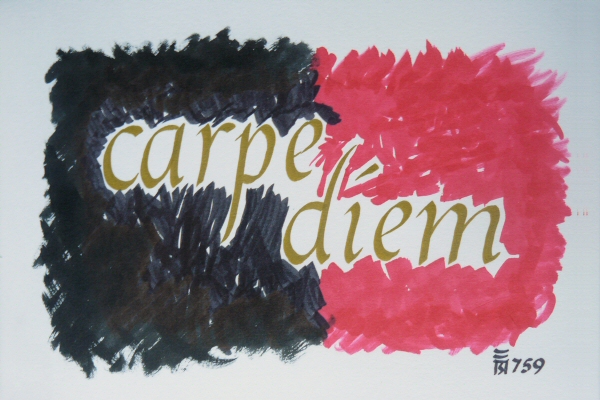 carpe
diem
759